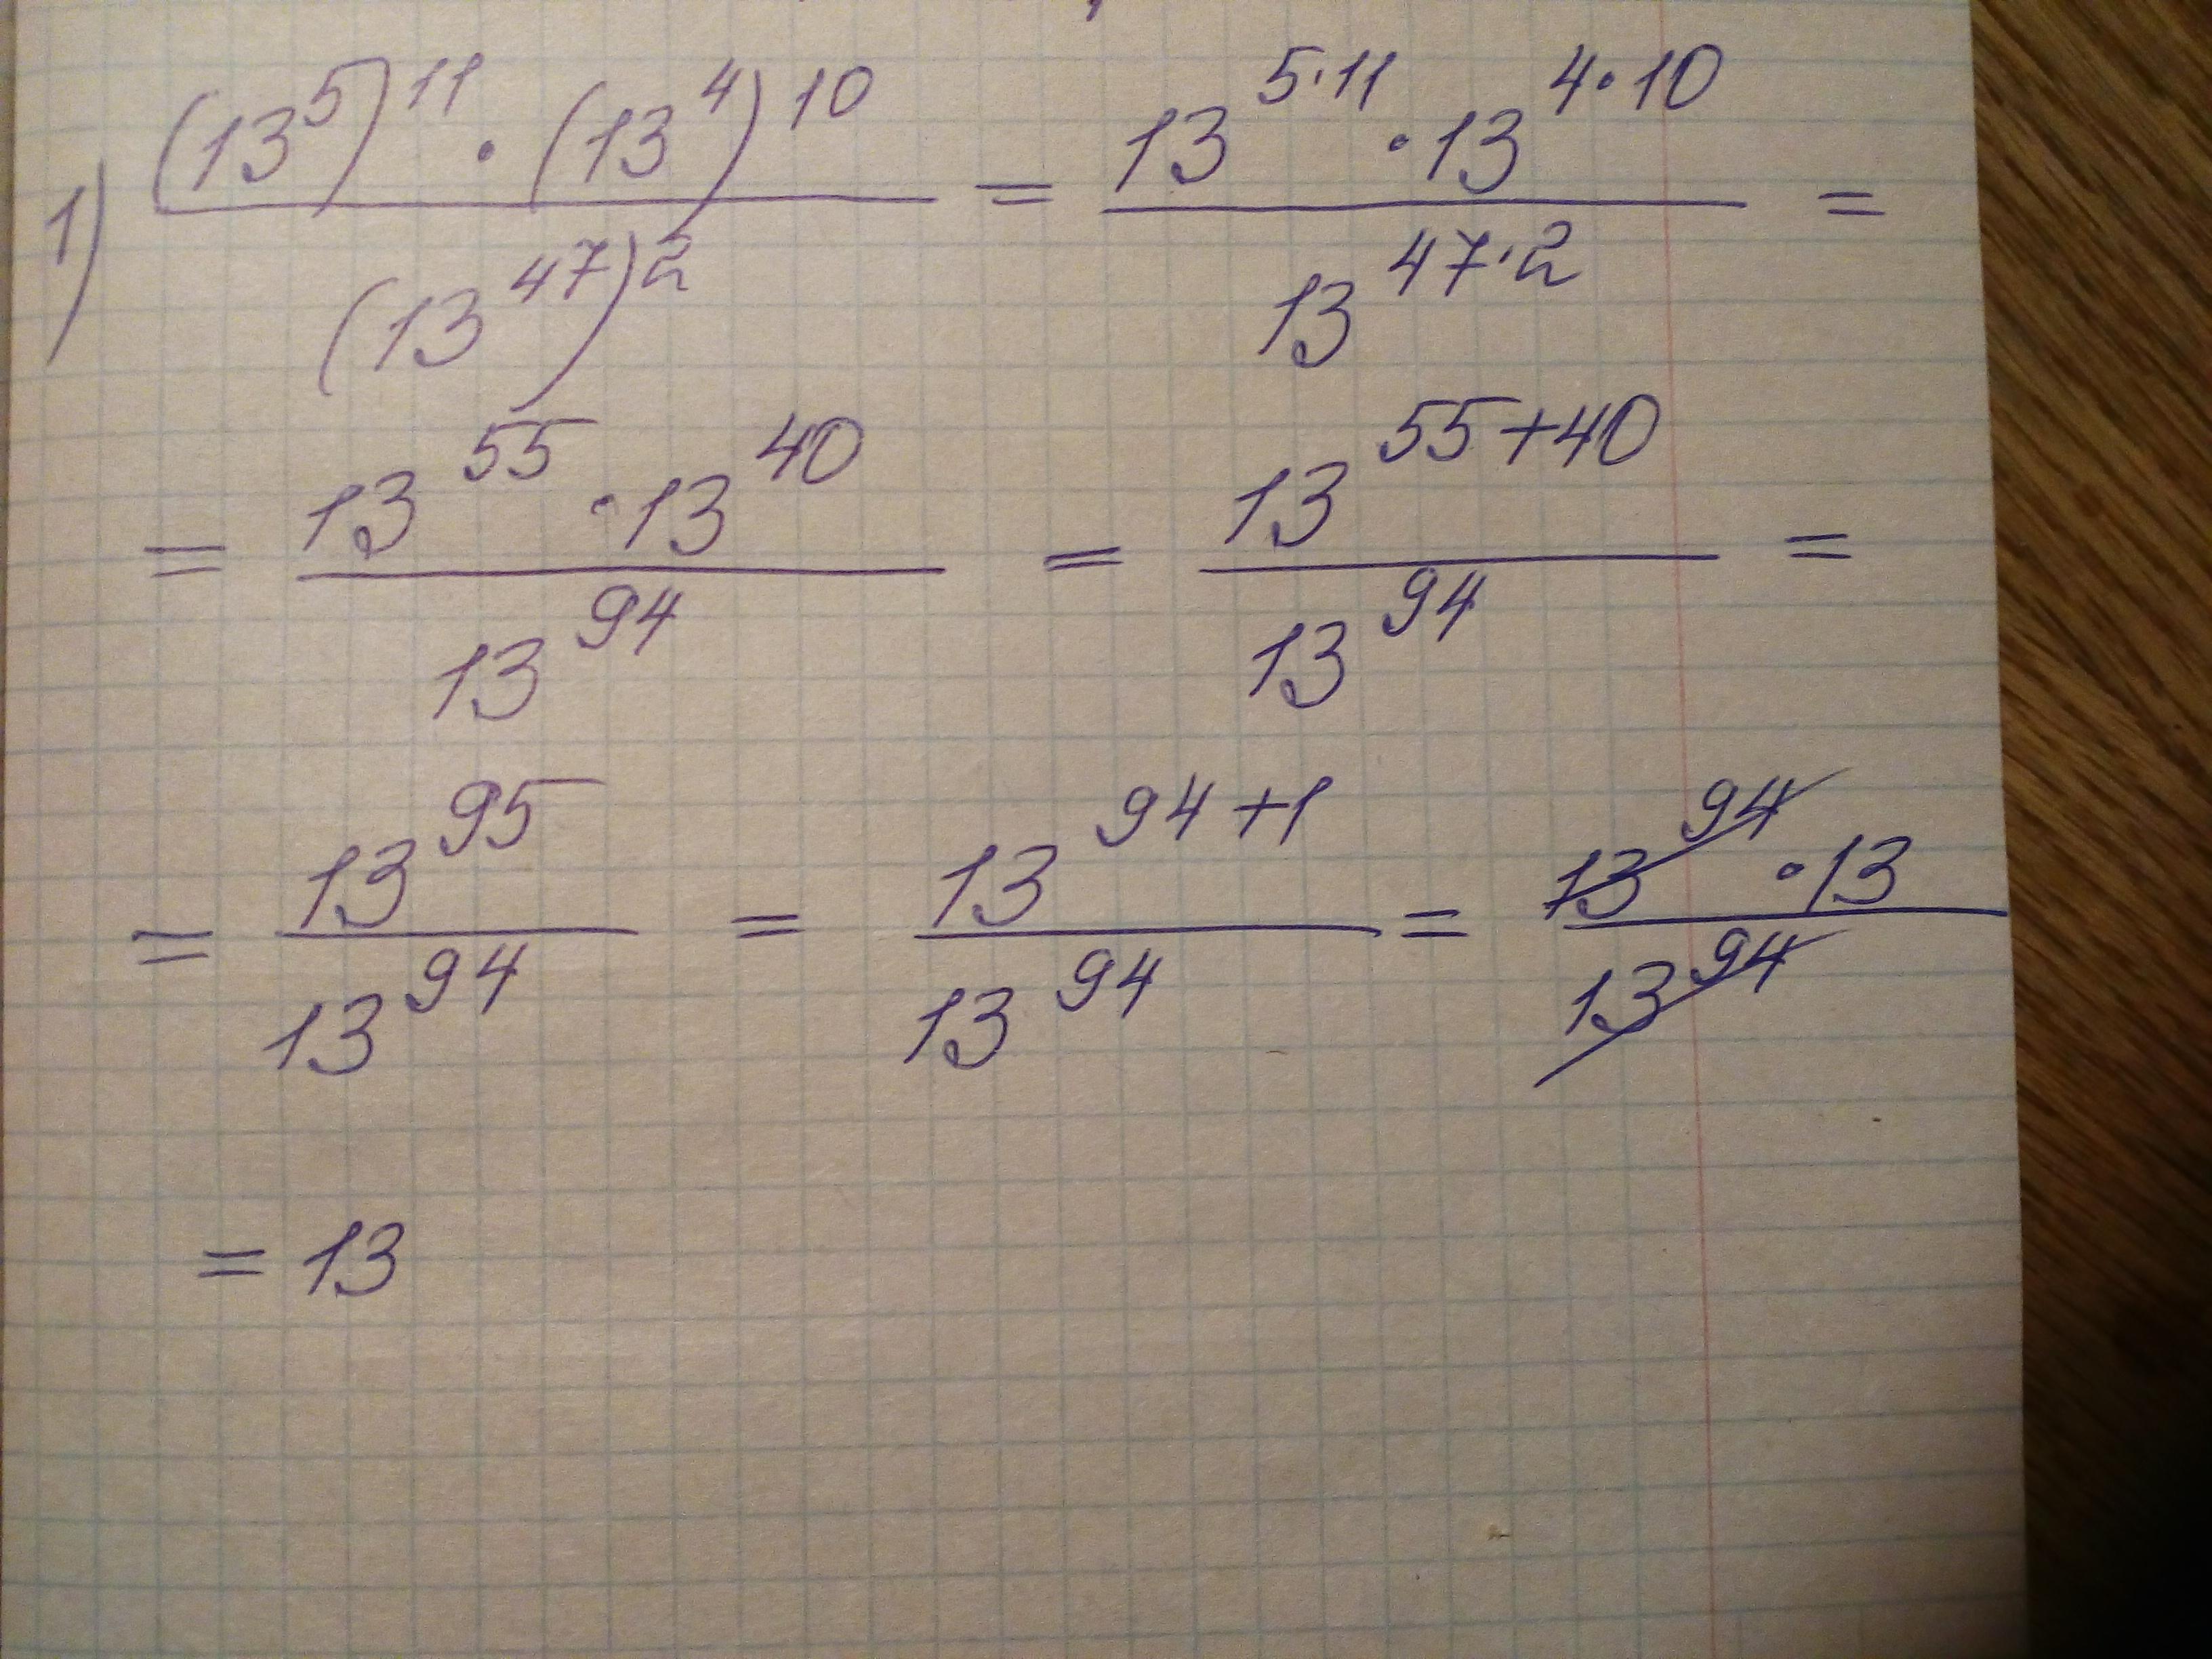 1) ((13^5)^11 · (13^4)^10) / (13^47)^2 = (13^(5·11) · 13^(4·10)) / 13^(47·2) =
= (13^55 · 13^40) / 13^94 = 13^(55+40) / 13^94 =
= 13^95 / 13^94 = 13^(94+1) / 13^94 = (13^94 · 13) / 13^94
= 13